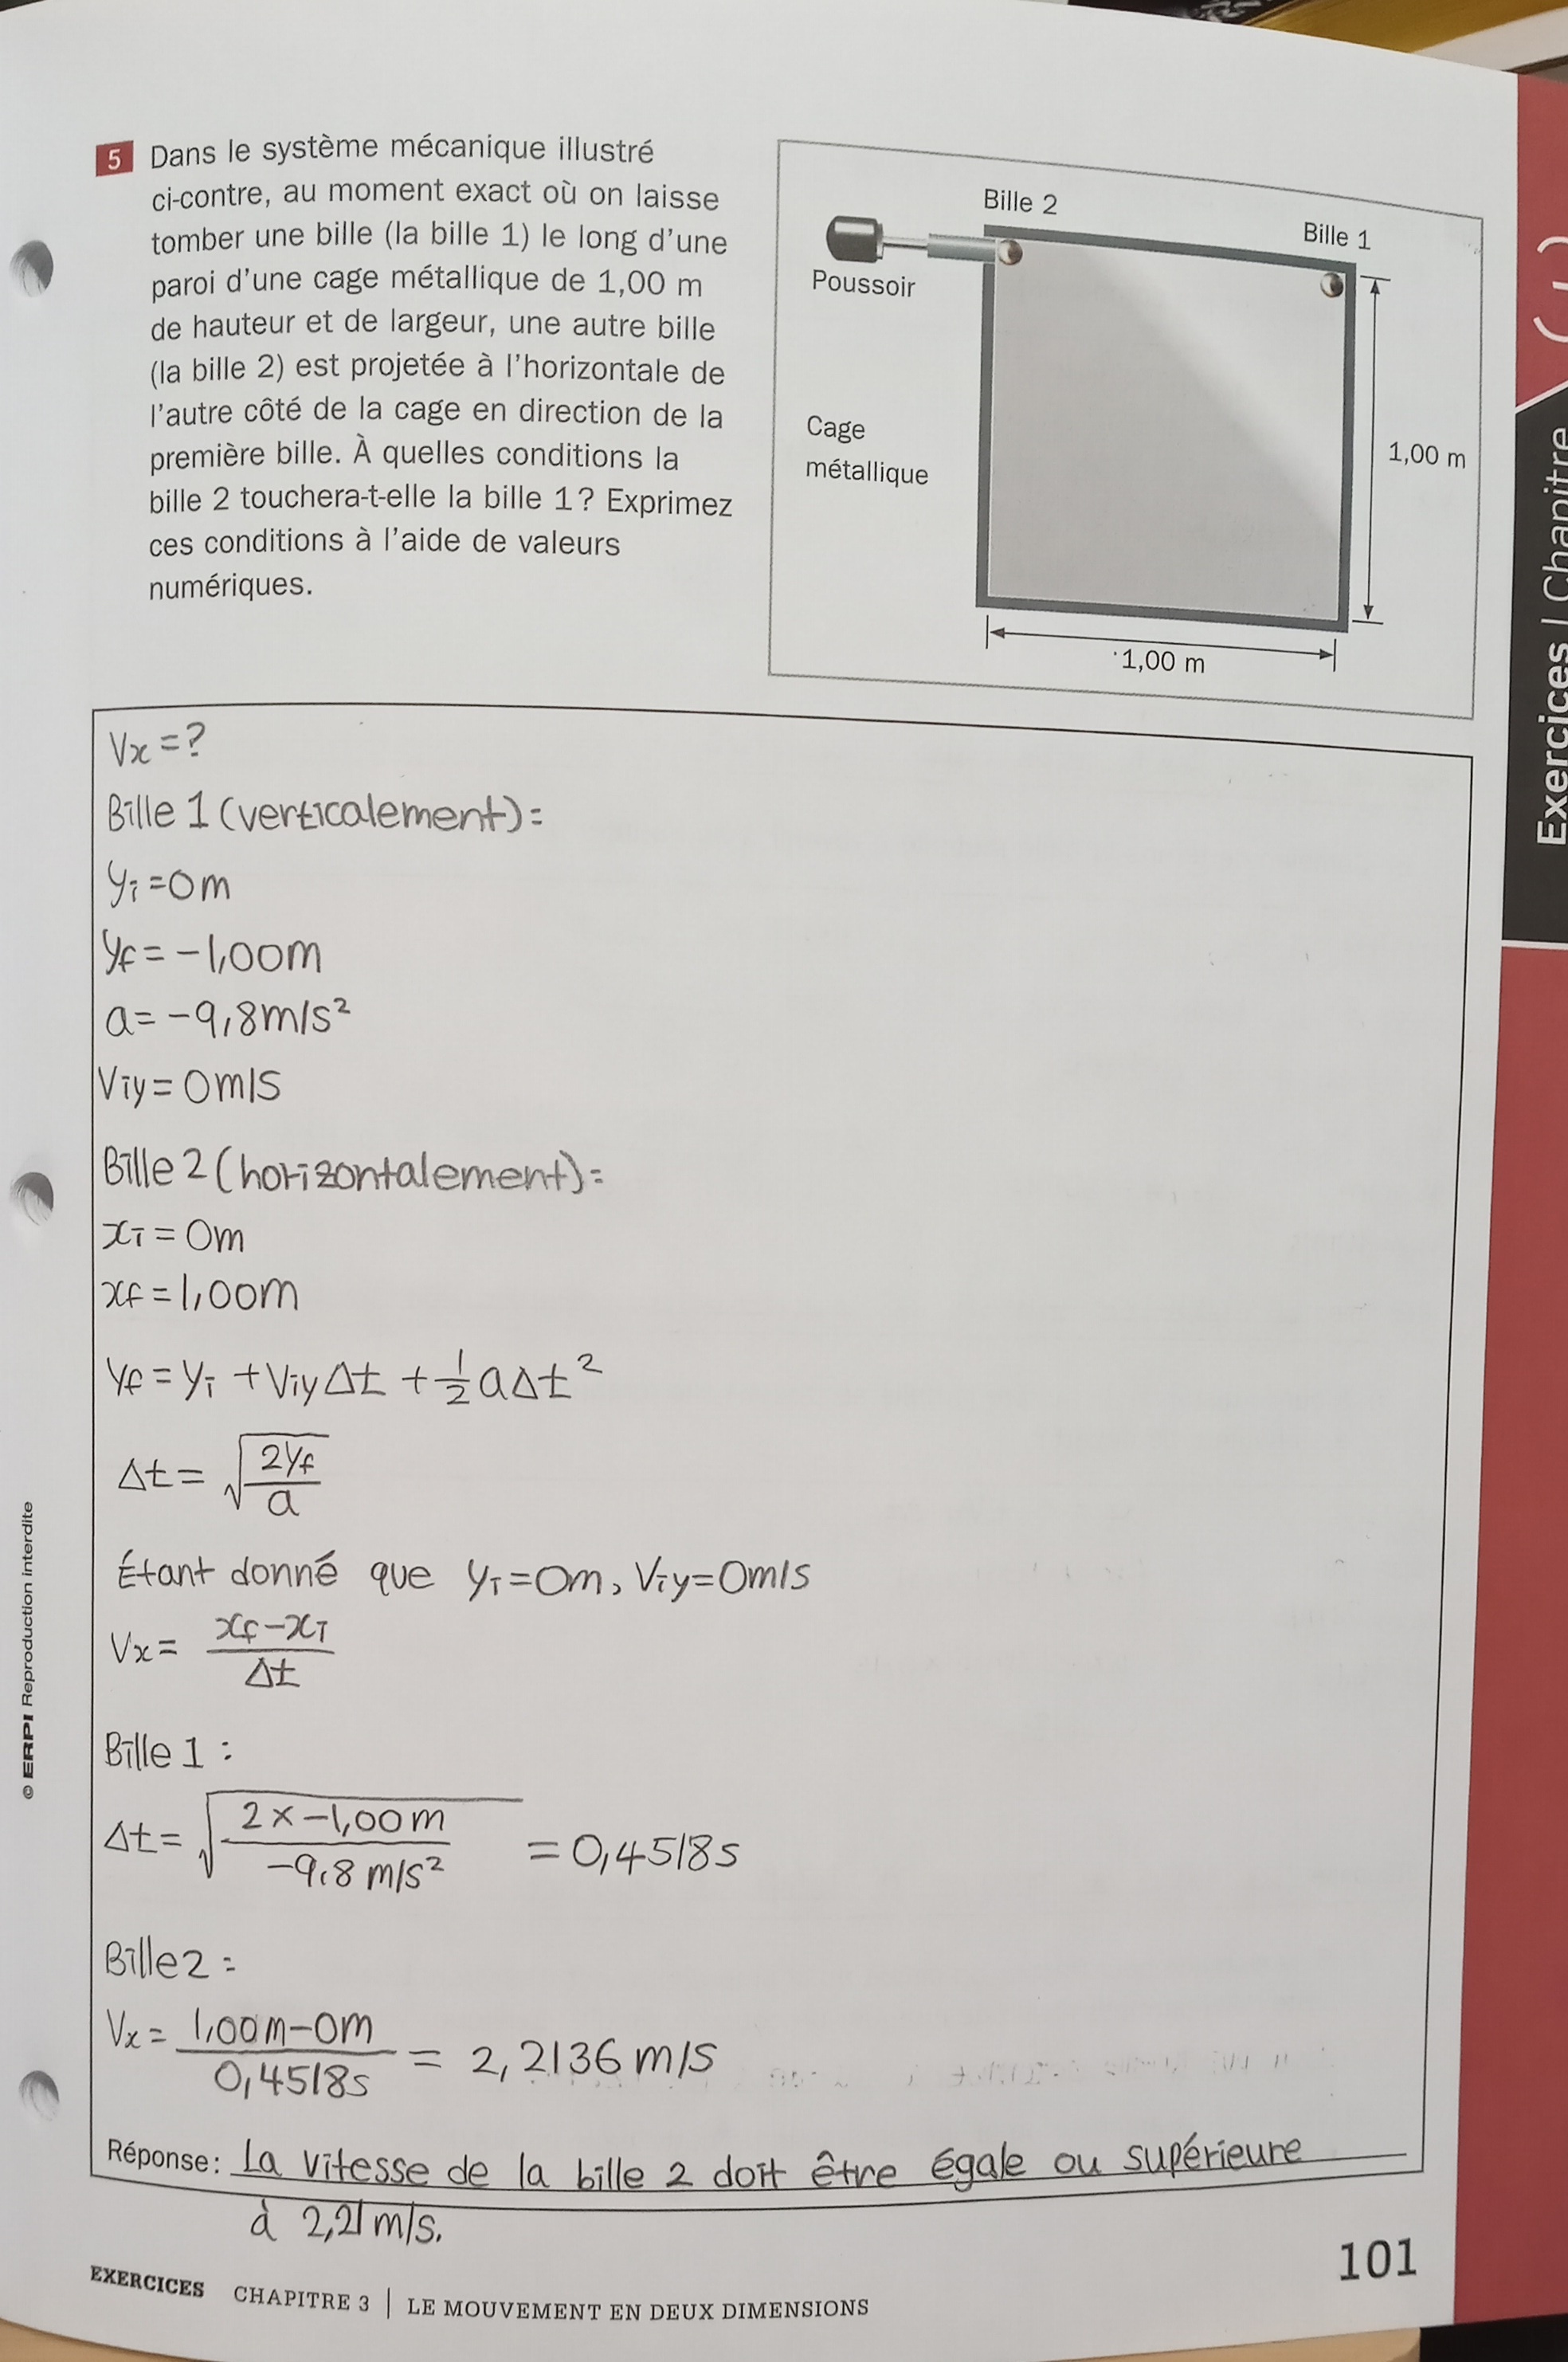 5 Dans le système mécanique illustré
ci-contre, au moment exact où on laisse
tomber une bille (la bille 1) le long d'une
paroi d'une cage métallique de 1,00 m
de hauteur et de largeur, une autre bille
(la bille 2) est projetée à l'horizontale de
l'autre côté de la cage en direction de la
première bille. À quelles conditions la
bille 2 touchera-t-elle la bille 1? Exprimez
ces conditions à l'aide de valeurs
numériques.
Bille 2
Bille 1
Poussoir
Cage
métallique
1,00 m
1,00 m
Exercices | Chapitre
Vx = ?
Bille 1 (verticalement):
yi = 0m
yf = -1,00m
a = -9,8m/s²
Viy = 0m/s
Bille 2 (horizontalement):
xi = 0m
xf = 1,00m
yf = yi + ViyΔt + 1/2 aΔt²
Δt = √(2yf/a)
Étant donné que yi=0m, Viy=0m/s
Vx = (xf-xi)/Δt
Bille 1 :
Δt = √(2x-1,00m/-9,8 m/s²) = 0,4518s
Bille 2 :
Vx = (1,00m-0m)/0,4518s = 2,2136 m/s
Réponse: La vitesse de la bille 2 doit être égale ou supérieure
à 2,21m/s.
© ERPI Reproduction interdite
101
EXERCICES CHAPITRE 3 | LE MOUVEMENT EN DEUX DIMENSIONS